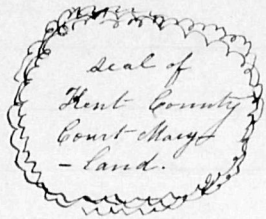 seal of
Kent County
Court Mary
-land.